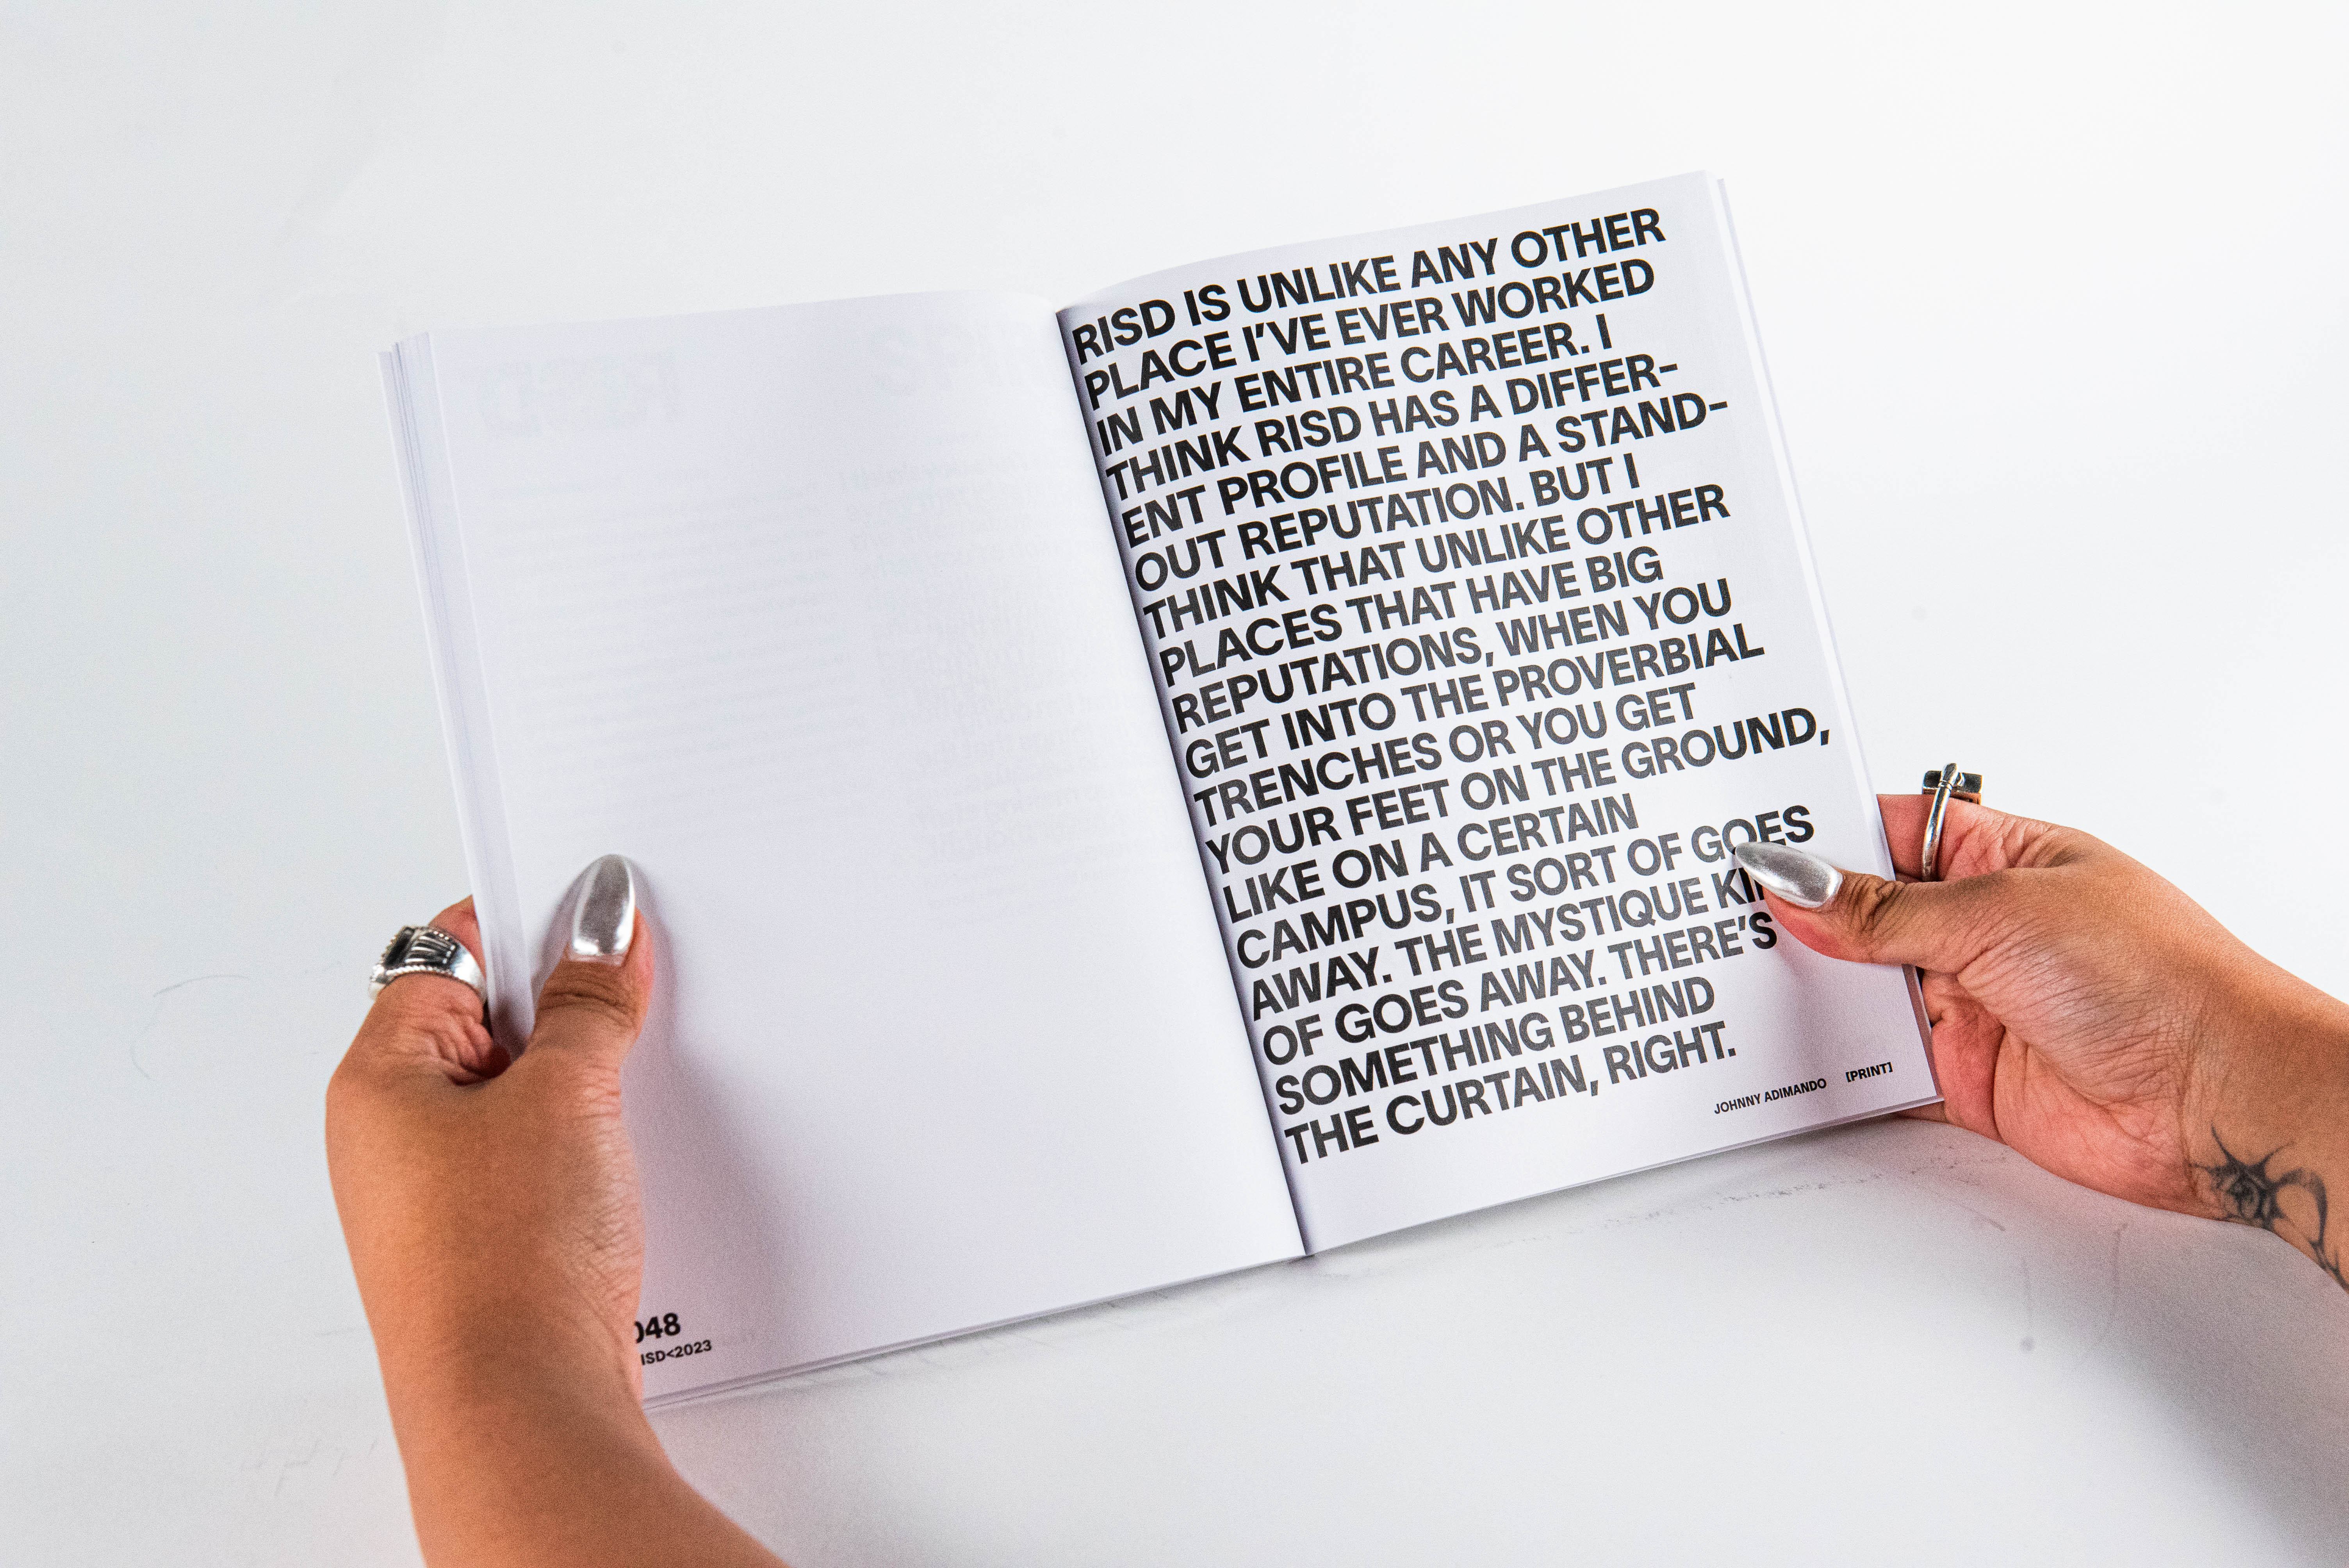 048
ISD<2023
RISD IS UNLIKE ANY OTHER
PLACE I'VE EVER WORKED
IN MY ENTIRE CAREER. I
THINK RISD HAS A DIFFER-
ENT PROFILE AND A STAND-
OUT REPUTATION. BUT I
THINK THAT UNLIKE OTHER
PLACES THAT HAVE BIG
REPUTATIONS, WHEN YOU
GET INTO THE PROVERBIAL
TRENCHES OR YOU GET
YOUR FEET ON THE GROUND,
LIKE ON A CERTAIN
CAMPUS, IT SORT OF GOES
AWAY. THE MYSTIQUE
OF GOES AWAY. THERE'S
SOMETHING BEHIND
THE CURTAIN, RIGHT.
JOHNNY ADIMANDO [PRINT]